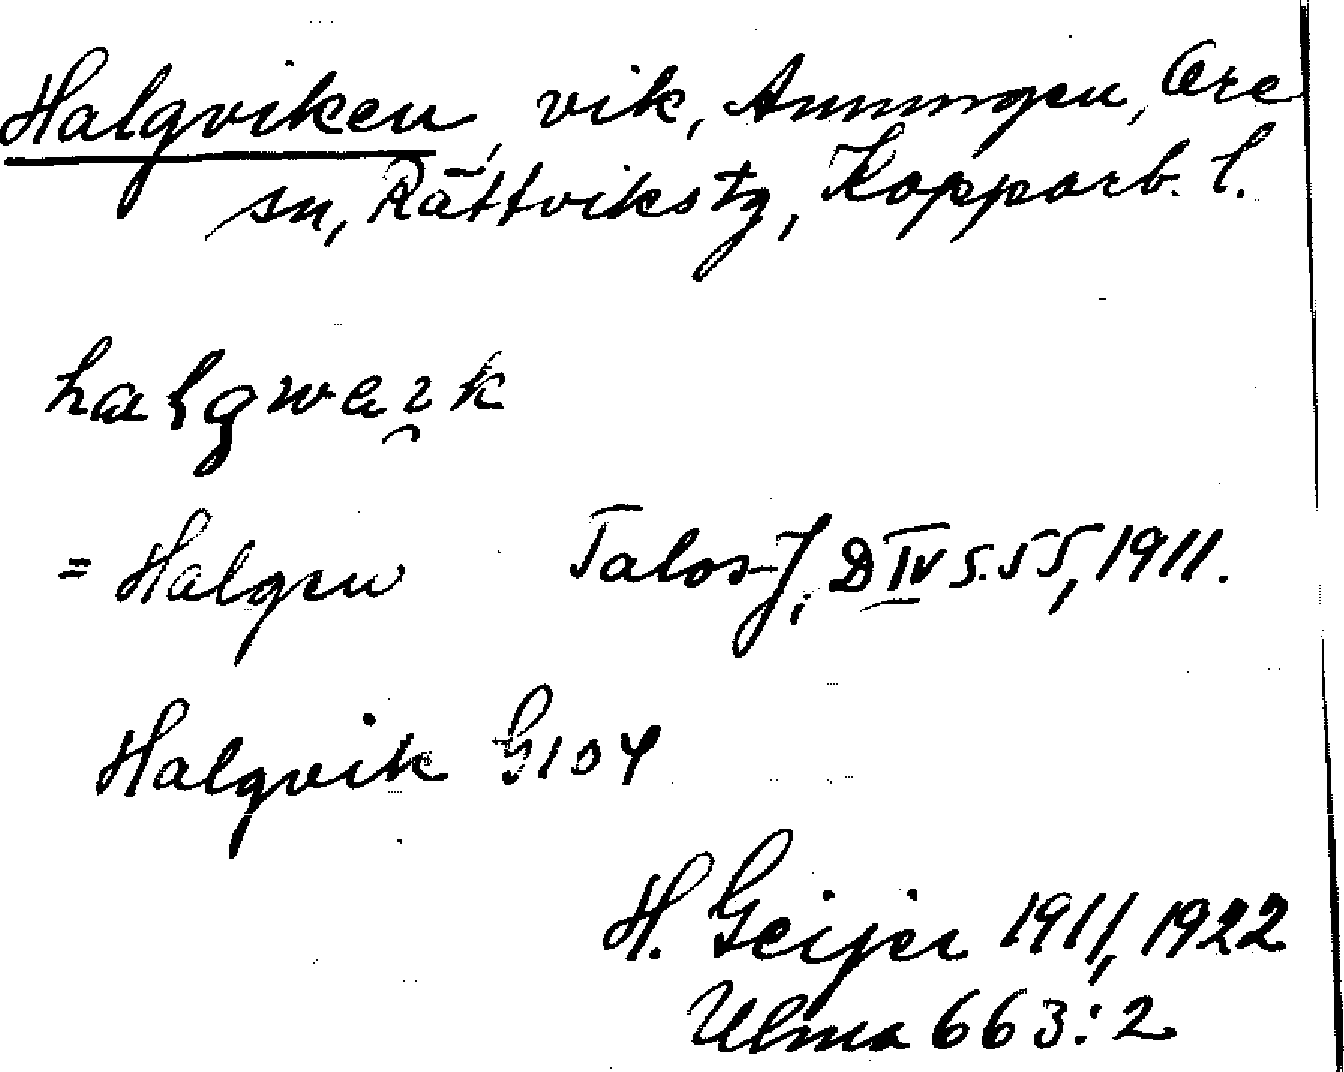 Halgviken, vik, Amungen, Ore
sn, Rättviks tg, Kopparb. l.
halgweık
= Halgen Talos-J, D IV s. 55, 1911.
Halgvik G104
H. Geijer 1911, 1922
Ulma 663:2